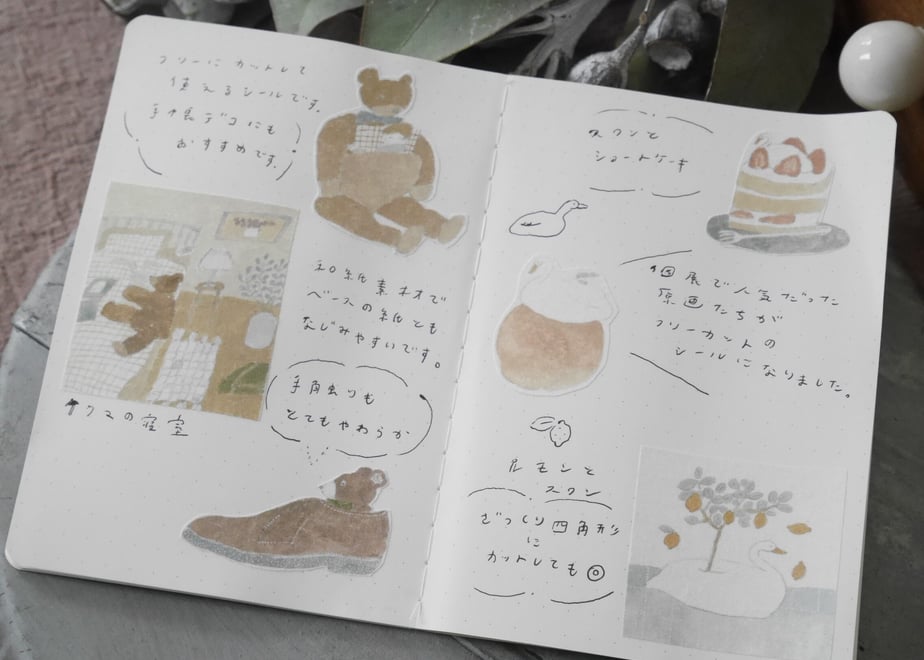 フリーにカットして
使えるシールです。
手帳デコにも
おすすめです。
和紙素材で
ベースの紙とも
なじみやすいです。
↑クマの寝室
手触りも
とてもやわらか
スワンと
ショートケーキ
個展で人気だった
原画たちが
フリーカットの
シールになりました。
レモンと
スワン
ざっくり四角形
に
カットしても◎